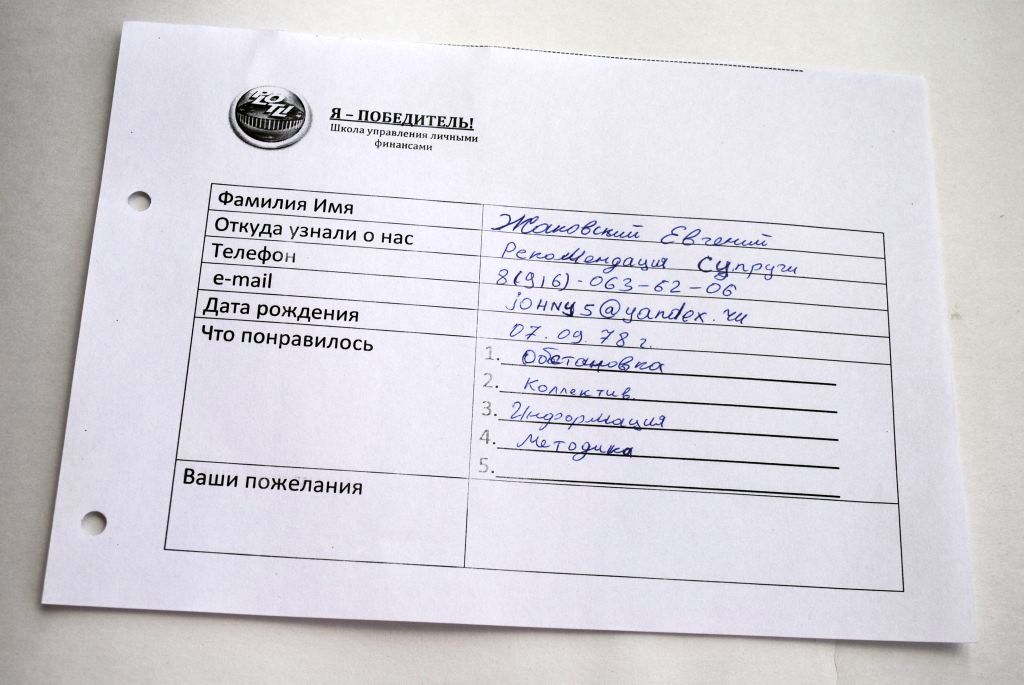 Я – ПОБЕДИТЕЛЬ!
Школа управления личными
финансами
Фамилия Имя Жаковский Евгений
Откуда узнали о нас Рекомендация супруги
Телефон 8(916)-063-62-06
e-mail johny5@yandex.ru
Дата рождения 07.09.78 г.
Что понравилось
1. Обстановка
2. Коллектив.
3. Информация
4. Методика
5.
Ваши пожелания